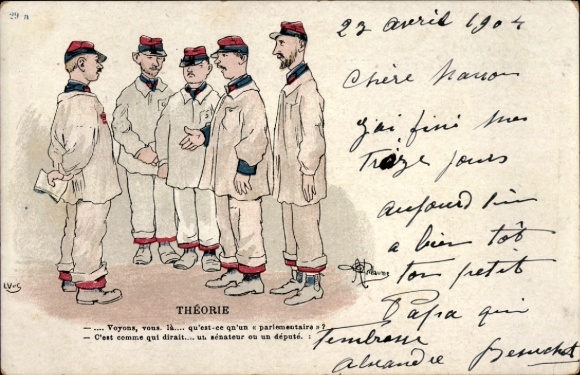 29 n
23 avril 1904
Chère
j'ai fini mes
Treize jours
aujourd'hui
a bien tôt
ton petit
Papa qui
t'embrasse
Alexandre
L.V & C
THÉORIE
— .... Voyons, vous. là.... qu'est-ce qu'un « parlementaire » ?
— C'est comme qui dirait.... un sénateur ou un député. :